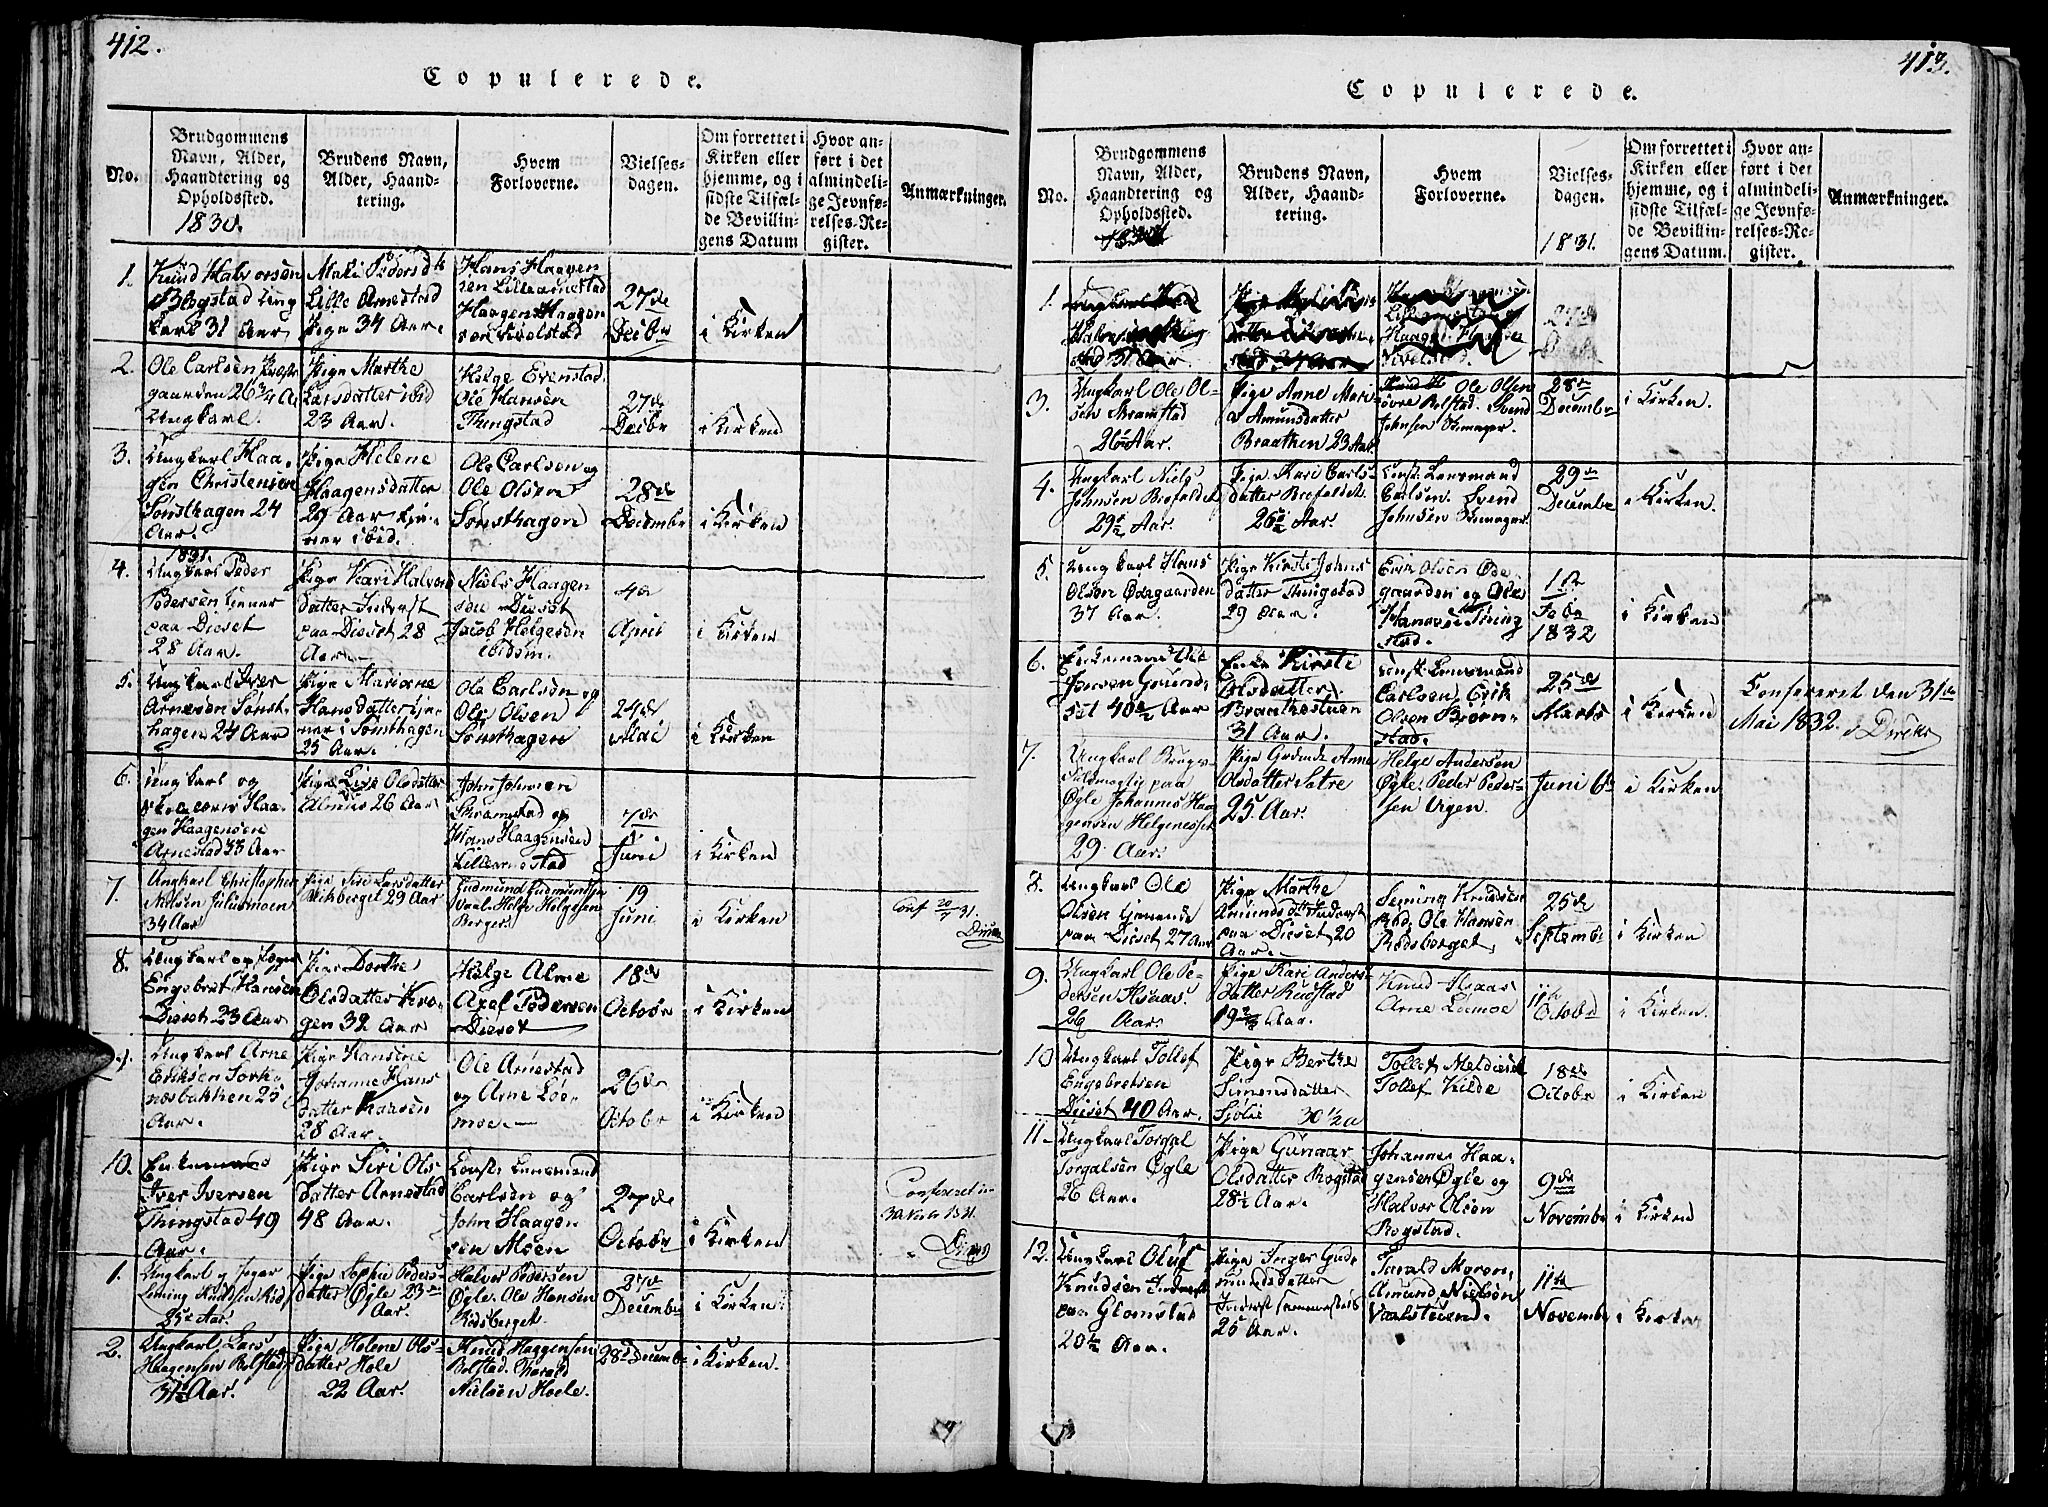 412.
Copulerede.
No.
Brudgommens
Navn, Alder,
Haandtering og
Opholdssted.
1830.
Brudens Navn,
Alder, Haand-
tering.
Hvem
Forloverne.
Vielses-
dagen.
Om forrettet i
Kirken eller
hjemme, og i
sidste Tilfæl-
de Bevillin-
gens Datum
Hvor an-
ført i det
almindeli-
ge Jevnfø-
relses-Re-
gister.
Anmærkninger.
1.
Knud Halvorsen
Bogstad Ung
karl 31 Aar
Lille Arnestad
Pige 34 Aar.
Hans Haagen
sen Lillearnestad
Haagen Haagen
27de
Decbr
i Kirken
2.
Ole Carlsen Præste
gaarden 26 3/4 A
Ungkarl.
Pige Marthe
Larsdatter ibid
23 Aar.
Helge Evenstad
Ole Hansen
Thingstad
27de
Decbr
i Kirken
3.
Ungkarl Haa-
gen Christensen
Sønsthagen 24
Aar.
Pige Helene
Haagensdatter
29 Aar tje-
ner ibid.
Ole Carlsen og
Ole Olsen
Sønsthagen
28de
Decembr
i Kirken
1831.
4.
Ungkarl Peder
Pedersen tjener
paa Dieset
28 Aar.
Pige Kari Halvors
datter Inderst
paa Dieset 28
Aar.
Niels Haagen
sen Dieset
Jacob Helgesen
ibidem.
4de
April
i Kirken
5.
Ungkarl Iver
Arnesen Sønst-
hagen 24 Aar
Pige Mariane
Hansdatter tje-
ner i Sønsthagen
25 Aar.
Ole Carlsen og
Ole Olsen
Sønsthagen
24de
Mai
i Kirken
6.
Ungkarl og
gen Haagensen
Arnestad 33 Aar
Pige Lise Olsdatter
26 Aar
John Johnsen
Skramstad og
Hans Haagensen
Lillearnestad
7de
Juni
i Kirken
7.
Ungkarl Christopher
Nilsen Julusmoen
34 Aar
Pige Siri Larsdatter
29 Aar
Gudmund Gudmundsen
Helge Helgesen
Berger.
19
Juni
i Kirken
Conf 20/7 31.
8.
Engebret Hansen
Dieset 23 Aar
Pige Dorthe
Olsdatter Kro-
gen 32 Aar
Helge Alme
Axel Pedersen
Dieset
18de
Octobr
i Kirken
9.
Ungkarl Arne
Eriksen Sork-
næsbakken 25
Aar.
Pige Hansine
Johanne Hans
datter Hansen
28 Aar.
Ole Arnestad
og Arne Løe-
moe.
26de
Octobr
i Kirken
10.
Enkemand
Iver Iversen
Thingstad 49
Aar.
Pige Siri Ols
datter Arnestad
48 Aar.
Const: Lensmand
Carlsen og
John Haagen
sen Moen
27de
Octobr
i Kirken
Confereret
1.
Ungkarl og Jæger
Seming Knudsen
25 Aar.
Pige Sophie Peders-
datter Øgle 23
Aar.
Halvor Pedersen
Øgle. Ole Hansen
Rødsberget.
27de
Decembr
i Kirken
2.
Ungkarl Lars
Haagensen Bolstad
31 1/2 Aar.
Pige Helene Ols-
datter Hole
22 Aar.
Knud Haagensen
Bolstad. Harald
Nielsen Hoele.
28de Decembr
i Kirken.
413.
Copulerede.
No.
Brudgommens
Navn, Alder,
Haandtering og
Opholdssted.
Brudens Navn,
Alder, Haand-
tering.
Hvem
Forloverne.
Vielses-
dagen.
1831.
Om forrettet i
Kirken eller
hjemme, og i
sidste Tilfæl-
de Bevillin-
gens Datum.
Hvor an-
ført i det
almindeli-
ge Jevnfø-
relses-Re-
gister.
Anmærkninger.
1.
3.
Ungkarl Ole Ol-
sen Kramstad
26 Aar.
Pige Anne Mari-
a Amundsdatter
Braathen 23 Aar
Ole Olsen
øvre Bolstad. Svend
Johnsen Skinager.
28de
Decembr
i Kirken.
4.
Ungkarl Niels
Johnsen Brofaldet
29 1/2 Aar.
Pige Kari Carls-
datter Brofaldet
26 Aar.
Const: Lensmand
Carlsen. Svend
Johnsen Skinager
29de
Decembr
i Kirken.
5.
Ungkarl Hans
Olsen Ødegaarden
37 Aar.
Pige Kirsti Johns
datter Thingstad
29 Aar.
Erik Olsen Øde-
gaarden og Ole
Hansen Thing
stad.
1ste
Febr
1832
i Kirken
6.
Enkemand Ole
set 40 1/2 Aar
Enke Kirsti
Olsdatter
Braathestuen
31 Aar.
Const: Lensmand
Carlsen Erik
Olsen Bjørn-
stad.
25de
Marts
i Kirken
Confereret den 31te
Mai 1832.
7.
Ungkarl Brugs-
fuldmægtig paa
Øgle Johannes Haa
gensen Helgenesset
29. Aar.
Anne
Olsdatter Sætre
25. Aar.
Helge Andersen
Øgle. Peder Peder-
sen Ugen.
Juni 6te
i Kirken
8.
Ungkarl Ole
Olsen tjenende
paa Dieset 27 Aar
Pige Marthe
Amundsdtr Inderst
paa Dieset 20
Aar.
Seming Knudsen
Rød. Ole Hansen
Rødsberget.
25de
Septembr
i Kirken
9.
Ungkarl Ole Pe-
dersen Haaas.
26 Aar.
Pige Kari Anders-
datter Rudstad
19 2/3 Aar.
Knud Haaas
Arne Løemoe
11te
Octobr
i Kirken.
10
Ungkarl Tollef
Engebretsen
Dieset 40 Aar.
Pige Berthe
Simensdatter
Sjølie 30 1/2 A
Tollef
Tollef Kilde
18de
Octobr
i Kirken
11.
Ungkarl Torgal
Torgalsen Øgle
26 Aar.
Pige Gunaar
Olsdatter Rogstad
28 1/2 Aar.
Johannes Haa-
gensen Øgle og
Halvor Olsen
Rogstad.
9de
Novembr
i Kirken
12.
Ungkarl Oluf
Knudsen Inderst
paa Glomstad
20 1/2 Aar.
Pige Inger Gud-
mundsdatter
Inderst sammesteds
25 Aar.
Harald Moren,
Amund Nielsen
11te
Novembr
i Kirken